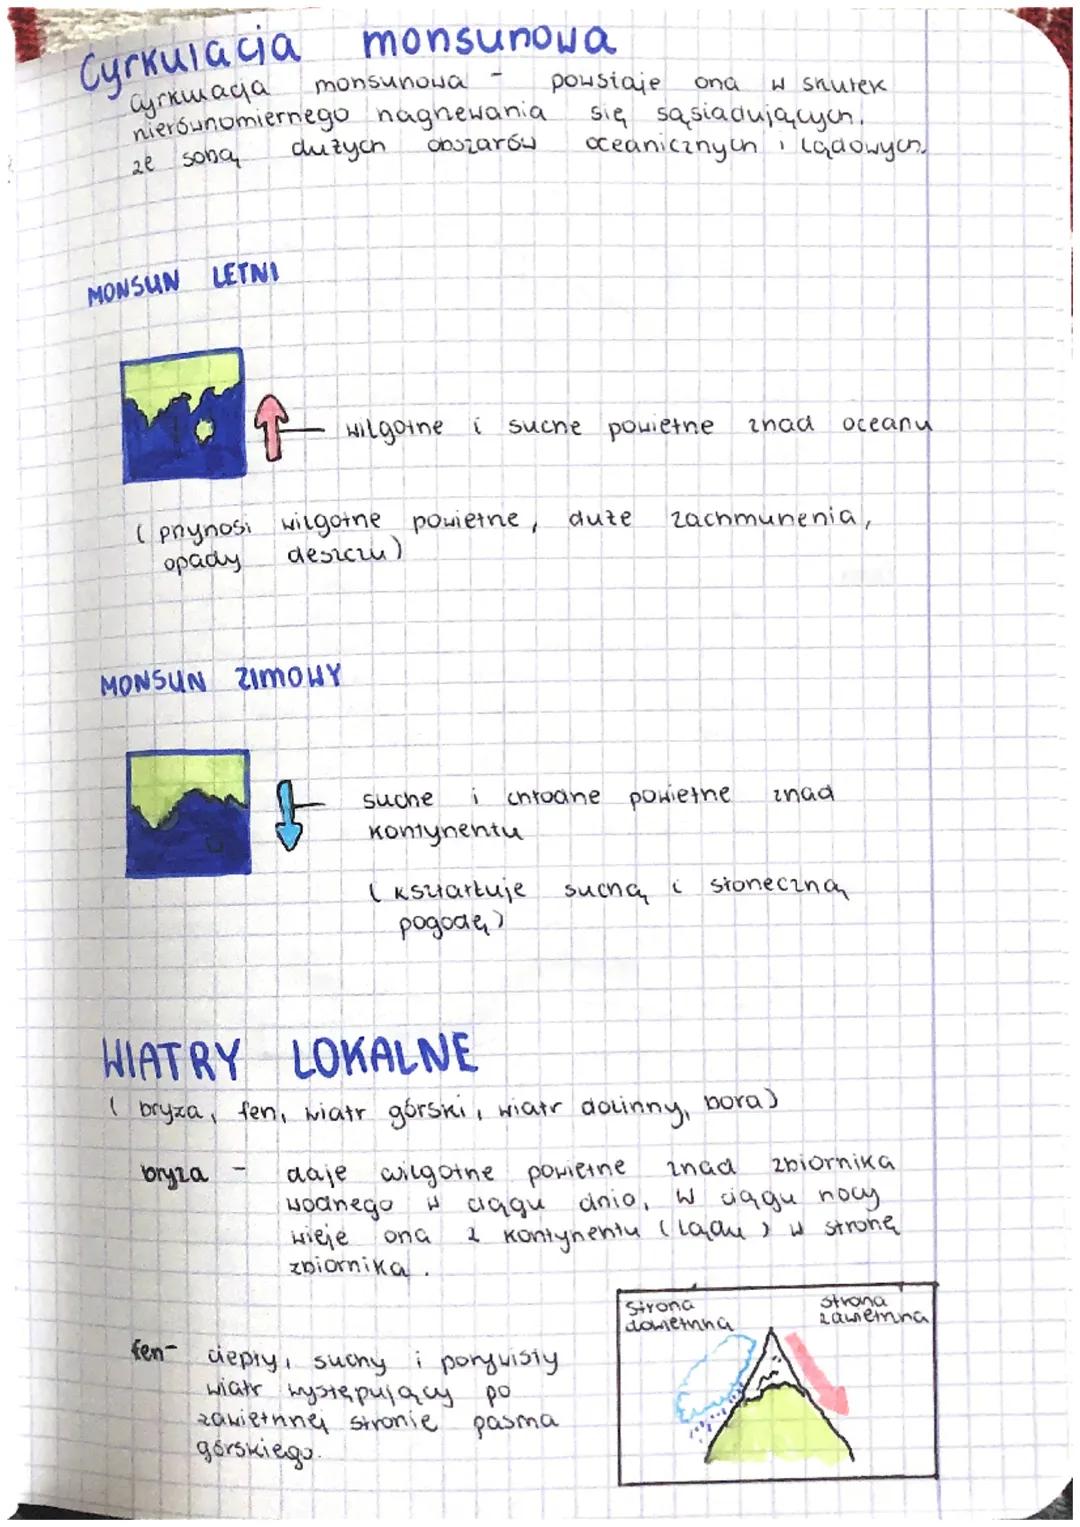 Cyrkulacja monsunowa
cyrkulacja monsunowa - powstaje ona w skutek
nierównomiernego nagrzewania się sąsiadujących
ze sobą dużych obszarów oceanicznych i lądowych.
MONSUN LETNI
wilgotne i suche powietrze znad oceanu
(przynosi wilgotne powietrze, duże zachmurzenia,
opady deszczu)
MONSUN ZIMOWY
suche i chłodne powietrze znad
kontynentu
(kształtuje suchą i słoneczną
pogodę)
WIATRY LOKALNE
(bryza, fen, wiatr górski, wiatr dolinny, bora)
bryza - daje wilgotne powietrze znad zbiornika
wodnego w ciągu dnia, w ciągu nocy
wieje ona z kontynentu (lądu) w stronę
zbiornika.
strona dowietrzna
strona zawietrzna
fen- ciepły, suchy i porywisty
wiatr występujący po
zawietrznej stronie pasma
górskiego.